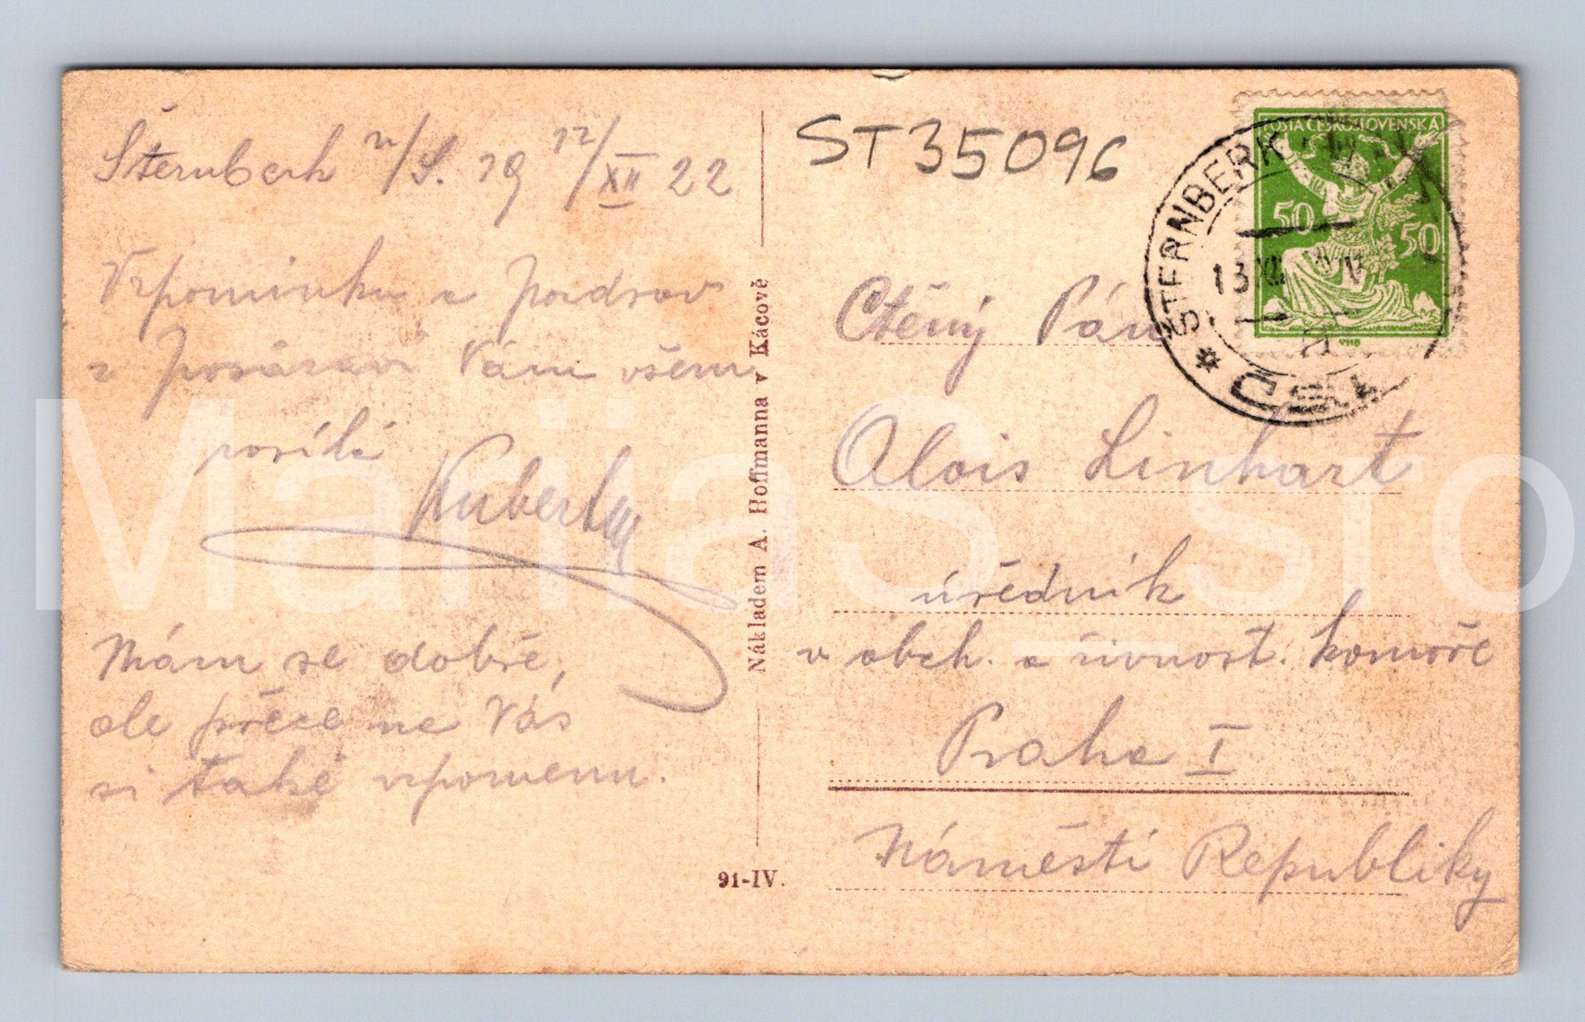 Šternberk n/S. 19 12/XII 22
Vzpomínku a pozdrav
z Posázaví Vám všem
posílá
Mám se dobře,
ale přece na Vás
si také vzpomenu.
Nákladem A. Hoffmanna v Kácově
91-IV.
ST35096
POŠTA ČESKOSLOVENSKÁ
50 50
ŠTERNBERK
13 XII
ČSR
Ctěný Pán
Alois Linhart
úředník
v obch. a živnost. komoře
Praha I
Náměstí Republiky
MariaS_sro